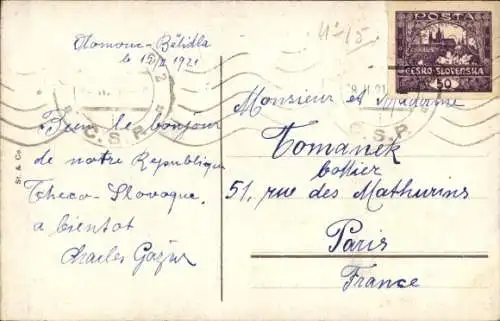 Olomouc-Bělidla
le 15/II 1921
Bien le bonjour
de notre Republique
Tcheco-Slovaque,
a bientot
Charles
C.S.P.
St. & Co.
4-15
POSTA
ČESKO-SLOVENSKA
50
C.S.P.
Monsieur et Madame
Tomanek
51, rue des Mathurins
Paris
France